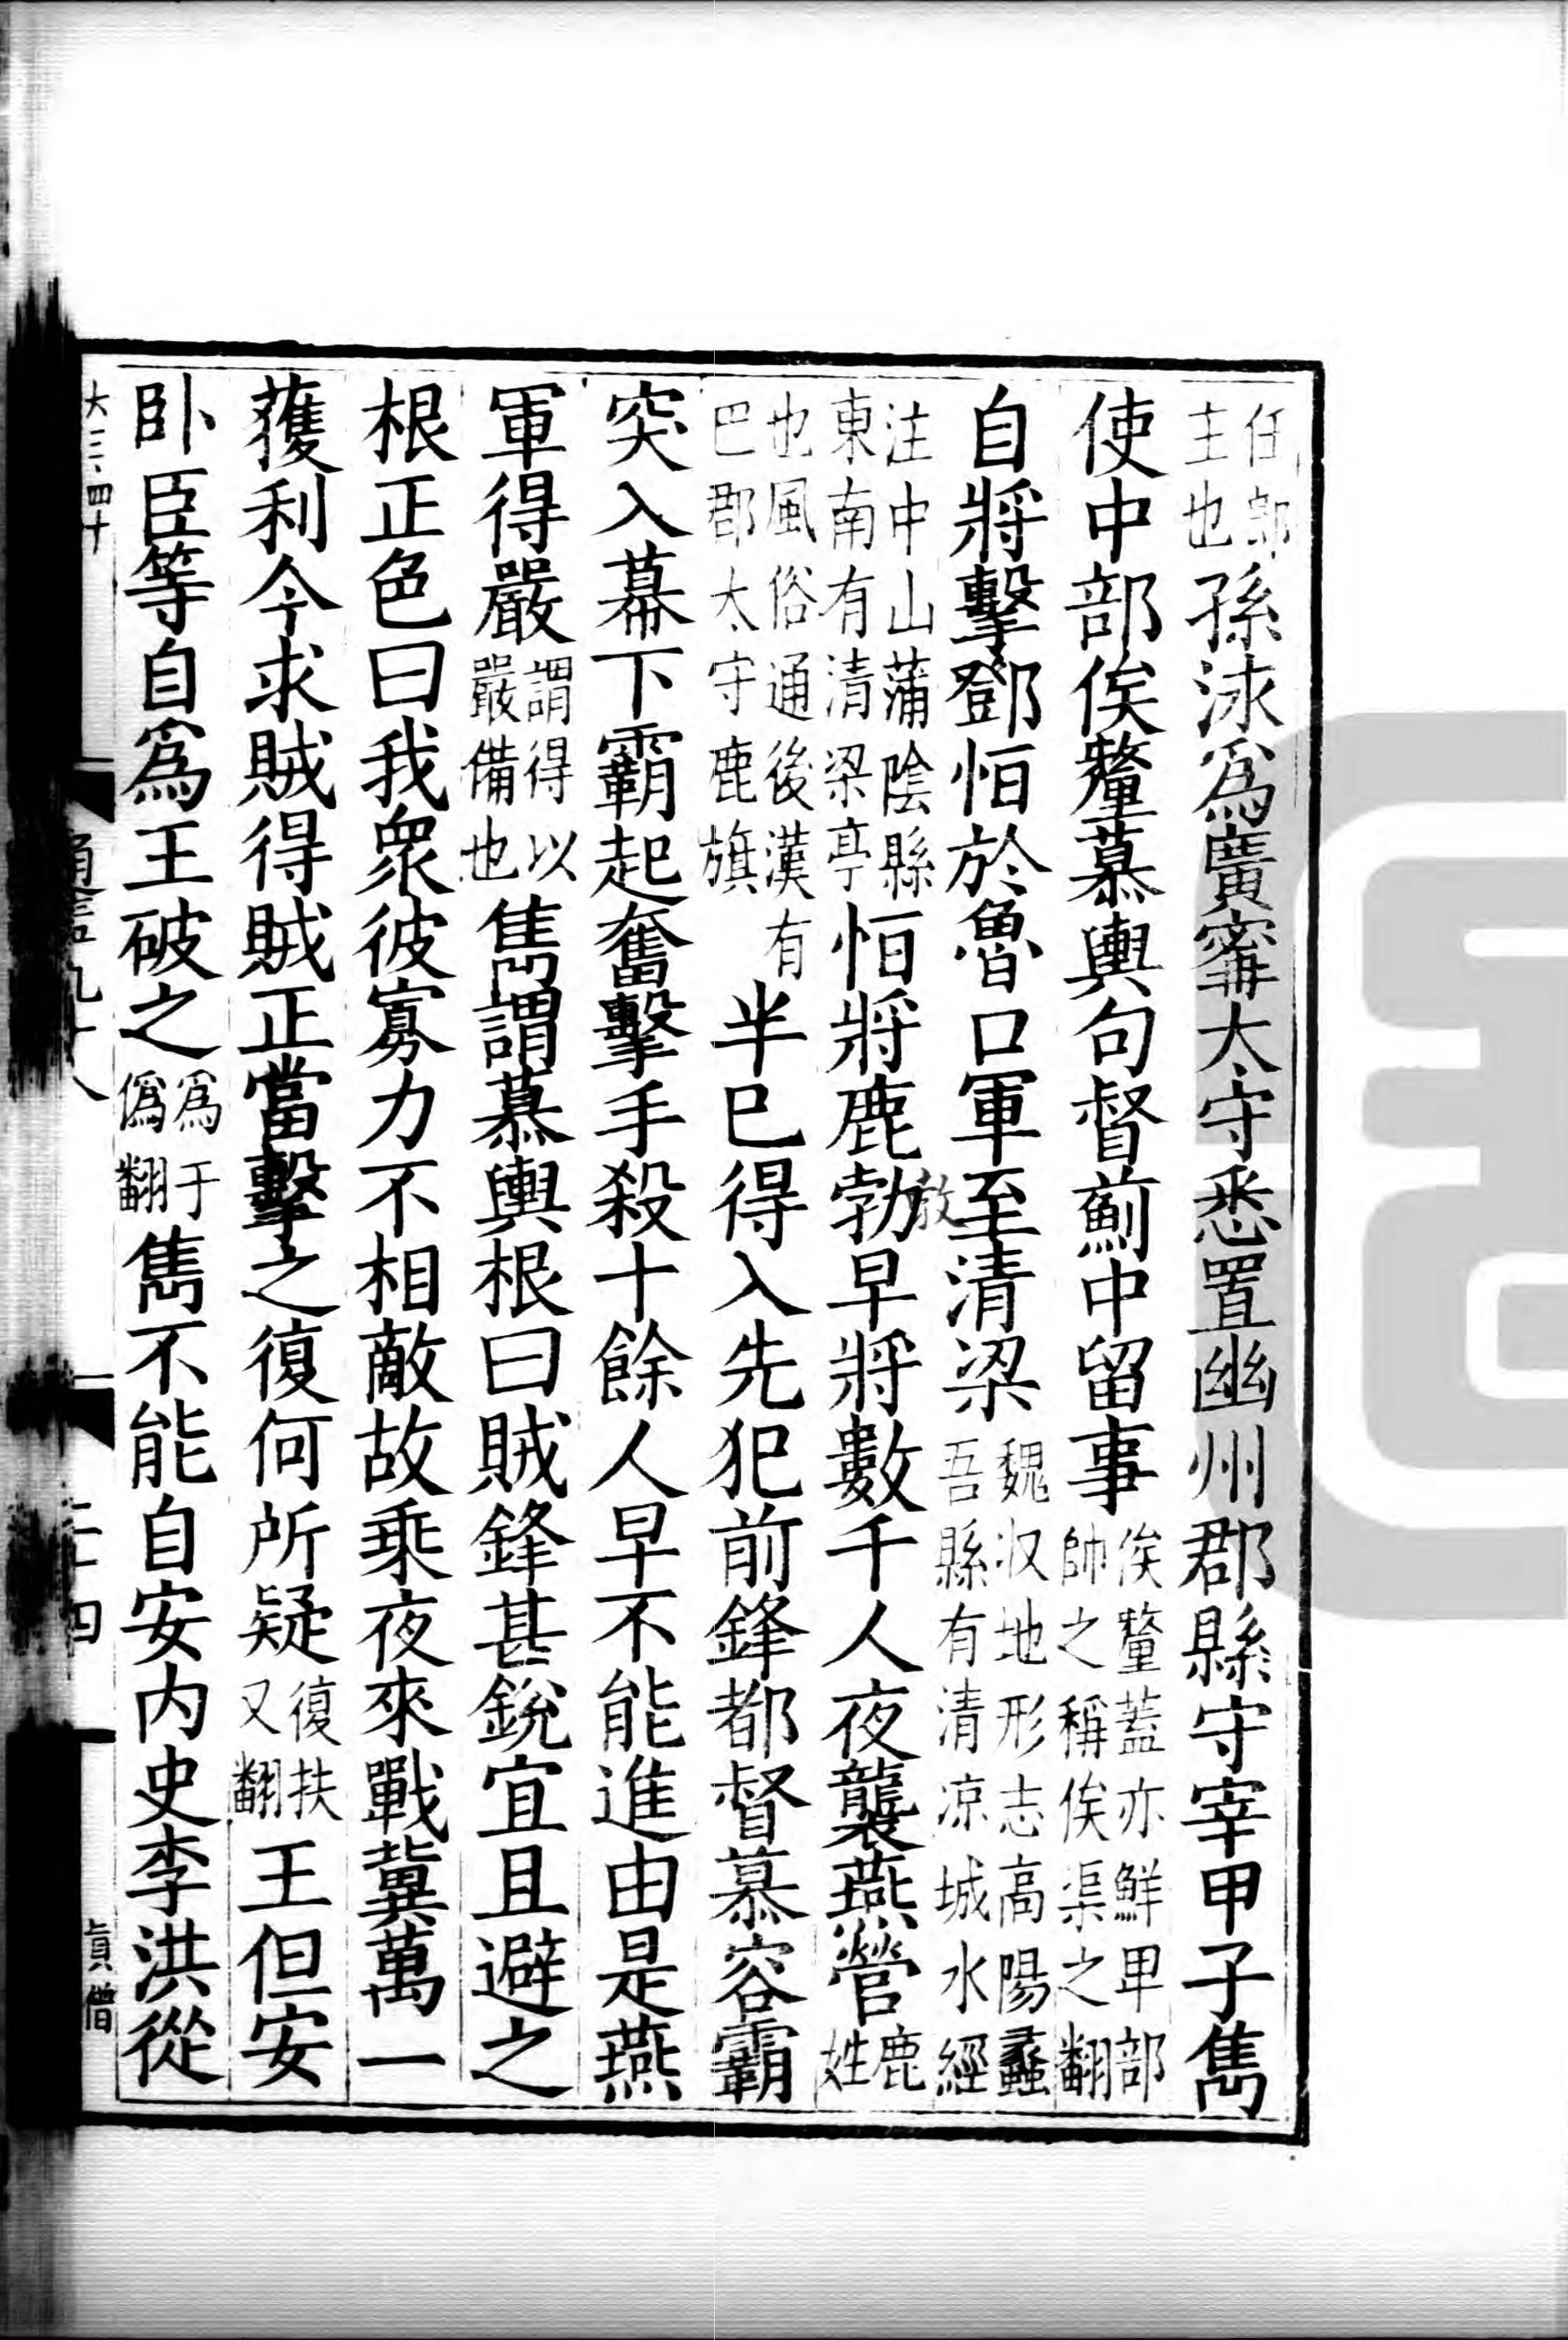 任部主也孫泳爲廣甯太守悉置幽州郡縣守宰甲子儁
使中部俟釐慕輿句督薊中留事俟釐蓋亦鮮卑部帥之稱俟渠之翻
自將擊鄧恒於魯口軍至清梁魏収地形志高陽蠡吾縣有清涼城水經
注中山蒲陰縣東南有清梁亭恒將鹿勃早將數千人夜襲燕營鹿姓
也風俗通後漢有巴郡太守鹿旗半已得入先犯前鋒都督慕容霸
突入幕下霸起奮擊手殺十餘人早不能進由是燕
軍得嚴謂得以嚴備也儁謂慕輿根曰賊鋒甚銳宜且避之
根正色曰我衆彼寡力不相敵故乘夜來戰冀萬一
獲利今求賊得賊正當擊之復何所疑復扶又翻王但安
臥臣等自爲王破之爲于僞翻儁不能自安内史李洪從